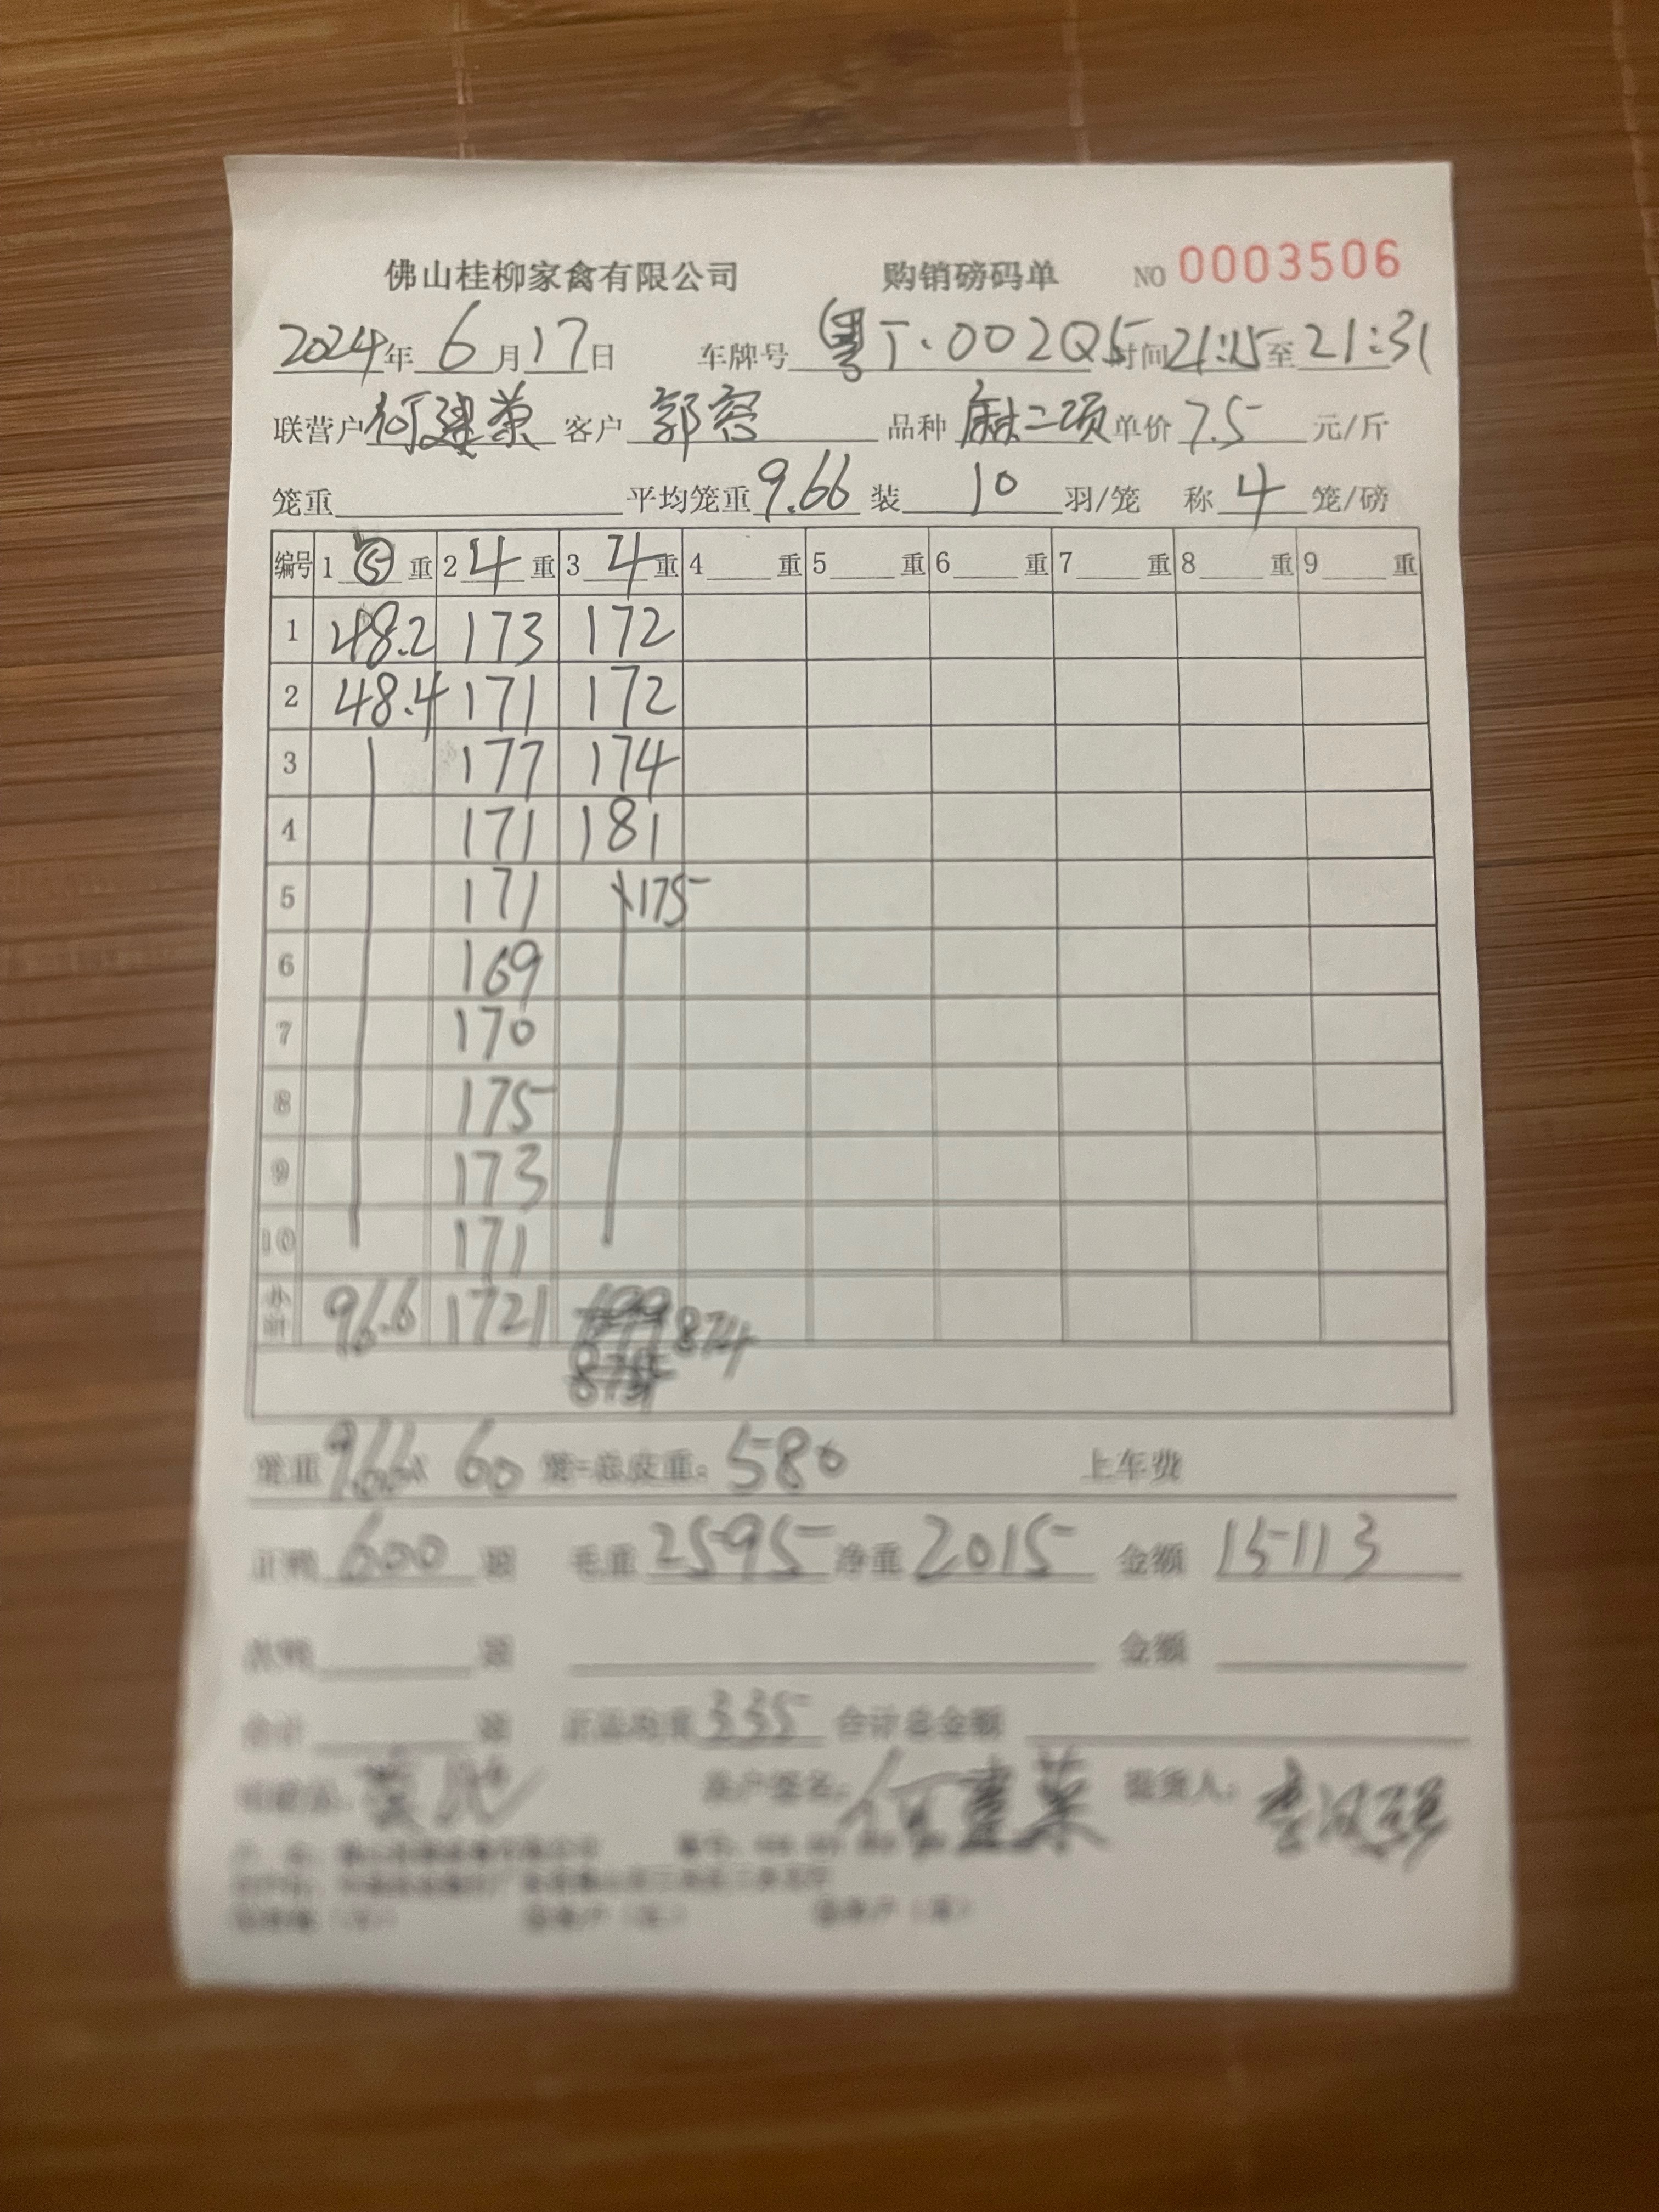 佛山桂柳家禽有限公司 购销磅码单 NO 0003506
2024年 6月17日 车牌号 粤T·002Q5 时间 21:15 至 21:31
联营户 何建荣 客户 郭容 品种 麻二项 单价 7.5 元/斤
笼重 平均笼重 9.66 装 10 羽/笼 称 4 笼/磅
编号 1 ⑤ 重 2 4 重 3 4 重 4 重 5 重 6 重 7 重 8 重 9 重
1 48.2 173 172
2 48.4 171 172
3 177 174
4 171 181
5 171 175
6 169
7 170
8 175
9 173
10 171
小计 96.6 1721 874
笼重 9.66 60 笼=总皮重: 580 上车费
正鸭 600 毛重 2595 净重 2015 金额 15113
金额
合计 335 合计总金额
何建荣 提货人: